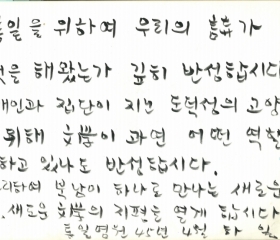 통일을 위하여 우리의 藝術가
것을 해왔는가 깊히 반성합시다
개인과 집단이 지닌 도덕성의 고양
위해 文學이 과연 어떤 역할
하고 있나도 반성합시다.
하여 북남이 하나로 만나는 새로운
새로운 文學의 지평을 열게 합시다
통일염원 45년 4월